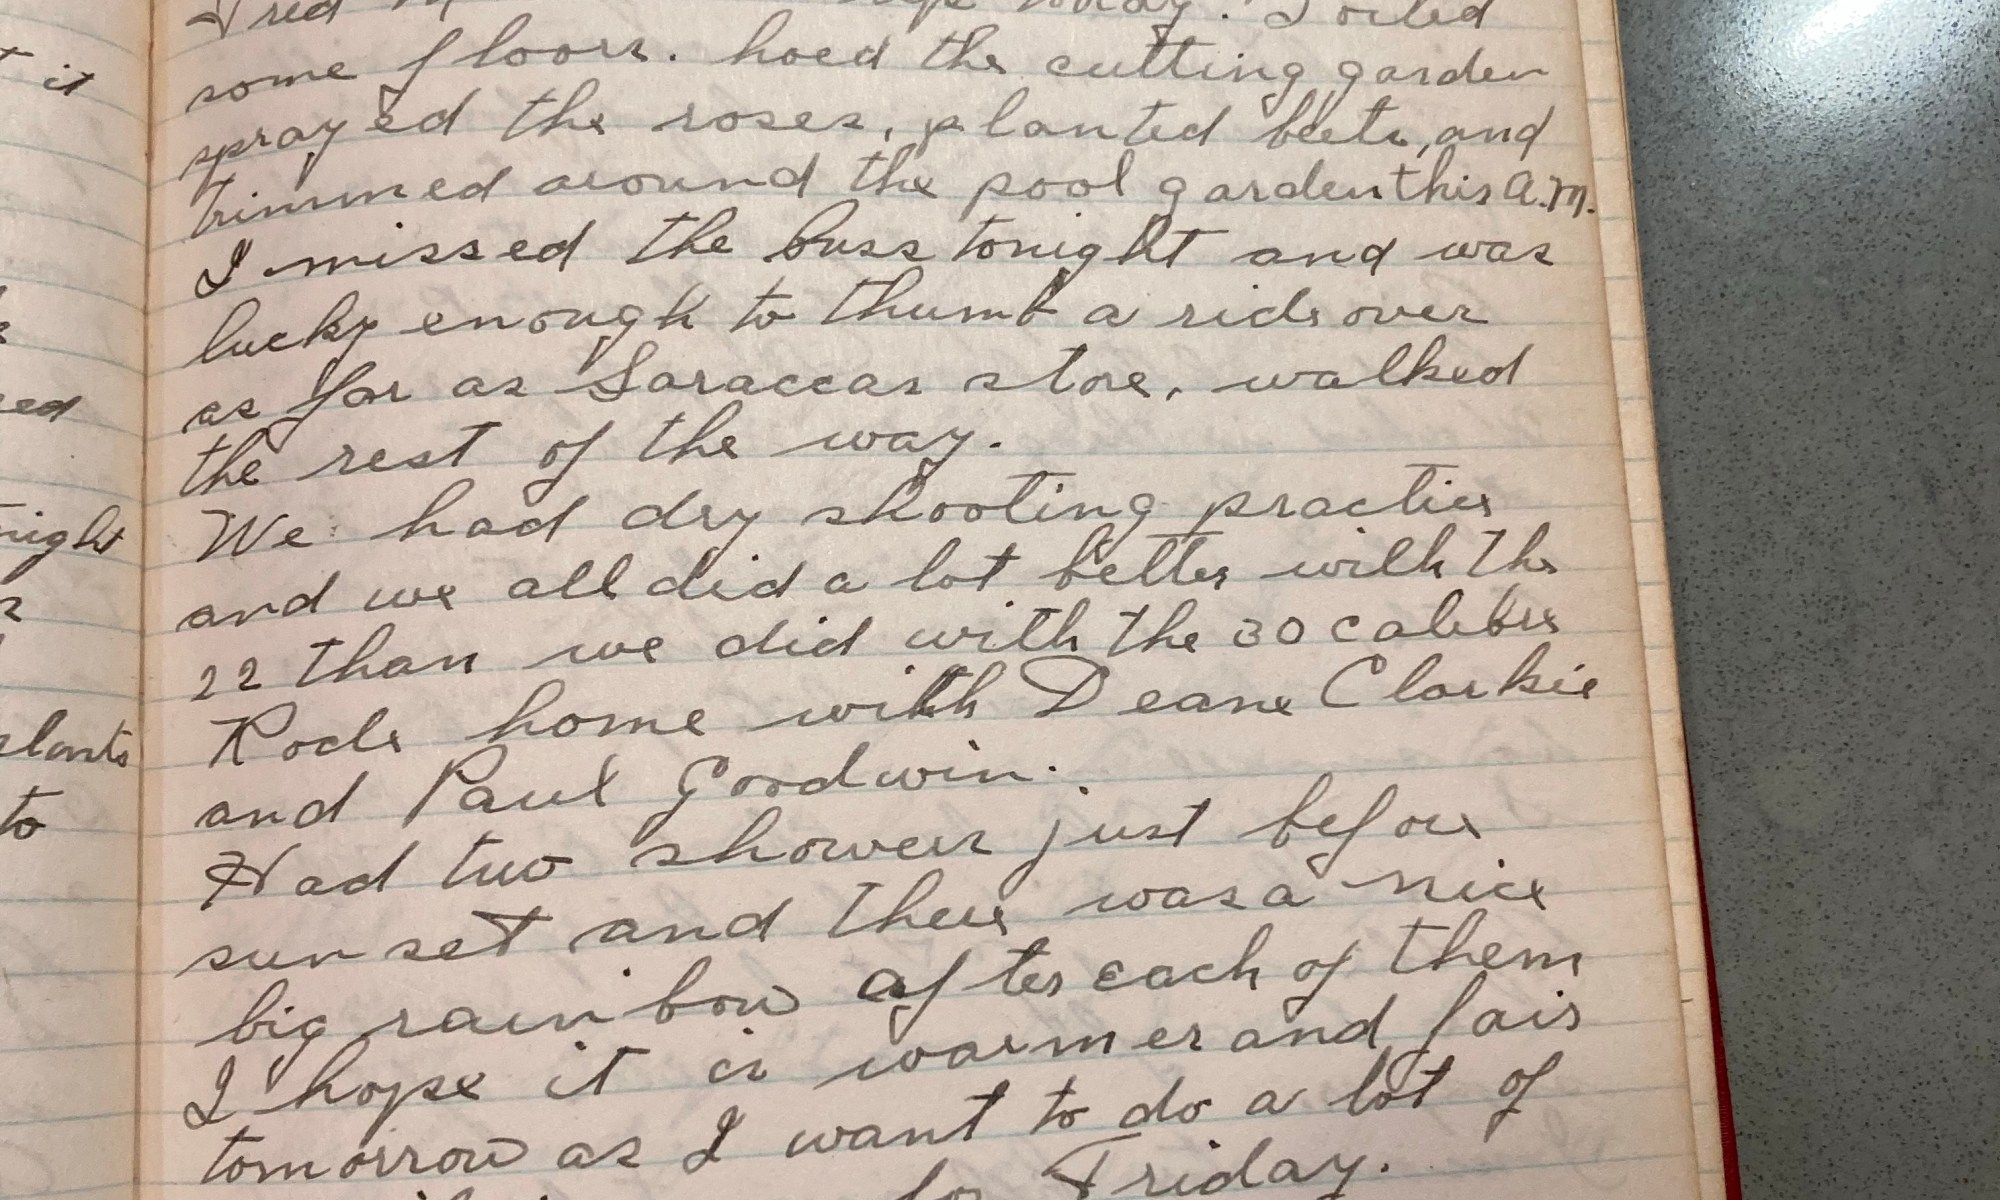 some floors. hoed the cutting garden
sprayed the roses, planted beets, and
trimmed around the pool garden this A.M.
I missed the buss tonight and was
lucky enough to thumb a ride over
as far as Saraccas store, walked
the rest of the way.
We had dry shooting practice
and we all did a lot better with the
22 than we did with the 30 calibre
Rode home with Deane Clarkie
and Paul Goodwin.
Had two showers just before
sunset and there was a nice
big rainbow after each of them
I hope it is warmer and fair
tomorrow as I want to do a lot of
for Friday.
it
night
to